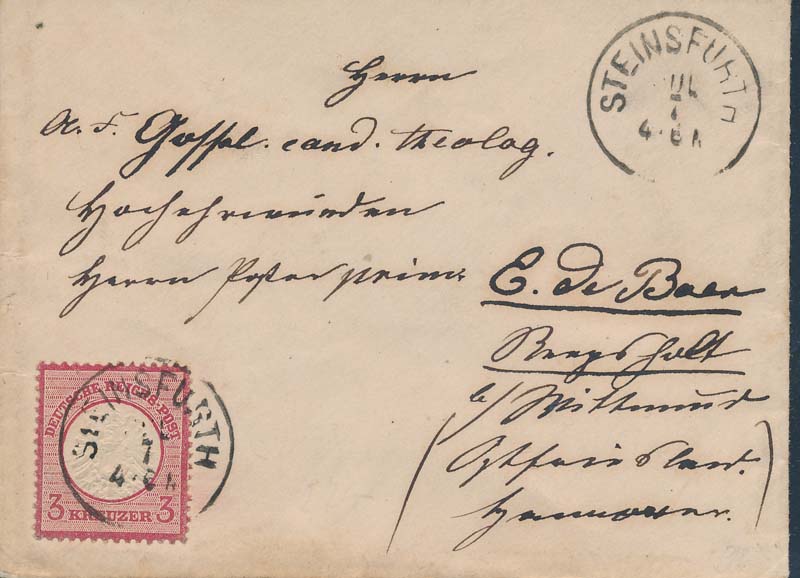 STEINSFURTH
4-6 N
Herrn
A. F. Gossel. cand. theolog.
Hochehrwürden
Herrn Pastor prim:
E. de Boer
Reepsholt
b/ Wittmund
(Ostfriesland.
Hannover.)
STEINSFURTH
1
4-6 N
DEUTSCHE REICHS-POST
3 KREUZER 3